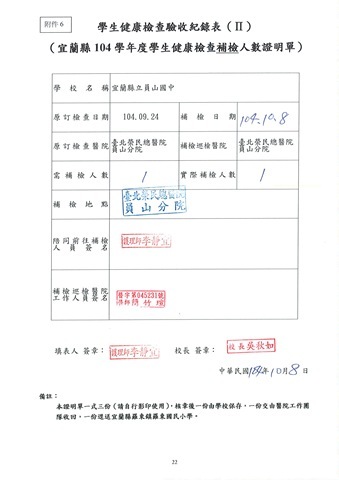 附件 6
學生健康檢查驗收紀錄表(Ⅱ)
(宜蘭縣 104 學年度學生健康檢查補檢人數證明單)
學校名稱 宜蘭縣立員山國中
原訂檢查日期 104.09.24 補檢日期 104.10.8
原訂檢查醫院 臺北榮民總醫院員山分院 補檢巡檢醫院 臺北榮民總醫院員山分院
需補檢人數 1 實際補檢人數 1
補檢地點 臺北榮民總醫院
員山分院
陪同前往補檢
人員簽名 護理師李靜宜
補檢巡檢醫院
工作人員簽名 醫字第045231號
填表人 簽章: 護理師李靜宜 校長 簽章: 校長吳秋如
中華民國104年10月8日
備註:
本證明單一式三份(請自行影印使用),核章後一份由學校保存,一份交由醫院工作團
隊收回,一份逕送宜蘭縣羅東鎮羅東國民小學。
22